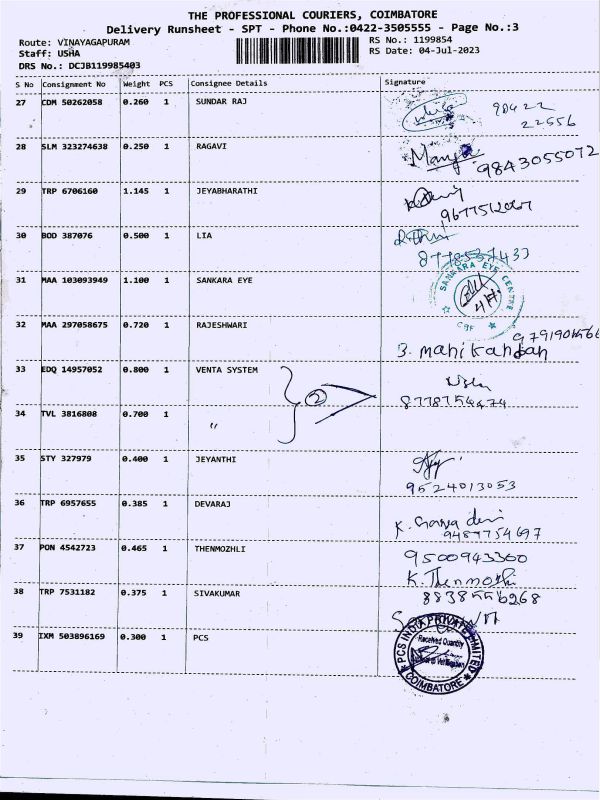 THE PROFESSIONAL COURIERS, COIMBATORE
Delivery Runsheet - SPT - Phone No.:0422-3505555 - Page No.:3
Route: VINAYAGAPURAM RS No.: 1199854
Staff: USHA RS Date: 04-Jul-2023
DRS No.: DCJB119985403
S No Consignment No Weight PCS Consignee Details Signature
27 CDM 50262058 0.260 1 SUNDAR RAJ 90422
22556
28 SLM 323274638 0.250 1 RAGAVI Manju 9843055072
29 TRP 6706160 1.145 1 JEYABHARATHI
30 BOD 387076 0.500 1 LIA
8778537433
31 MAA 103093949 1.100 1 SANKARA EYE SANKARA EYE CENTRE
CBE
32 MAA 297058675 0.720 1 RAJESHWARI
B. Manikandan
33 EDQ 14957052 0.800 1 VENTA SYSTEM 2
8778754474
34 TVL 3816808 0.700 1 "
35 STY 327979 0.400 1 JEYANTHI
9524013053
36 TRP 6957655 0.385 1 DEVARAJ K.
9487754697
37 PON 4542723 0.465 1 THENMOZHLI 9500943360
K. Thenmozhi
38 TRP 7531182 0.375 1 SIVAKUMAR 8838556268
39 IXM 503896169 0.300 1 PCS PCS INDIA PRIVATE LIMITED
Received Quantity
COIMBATORE